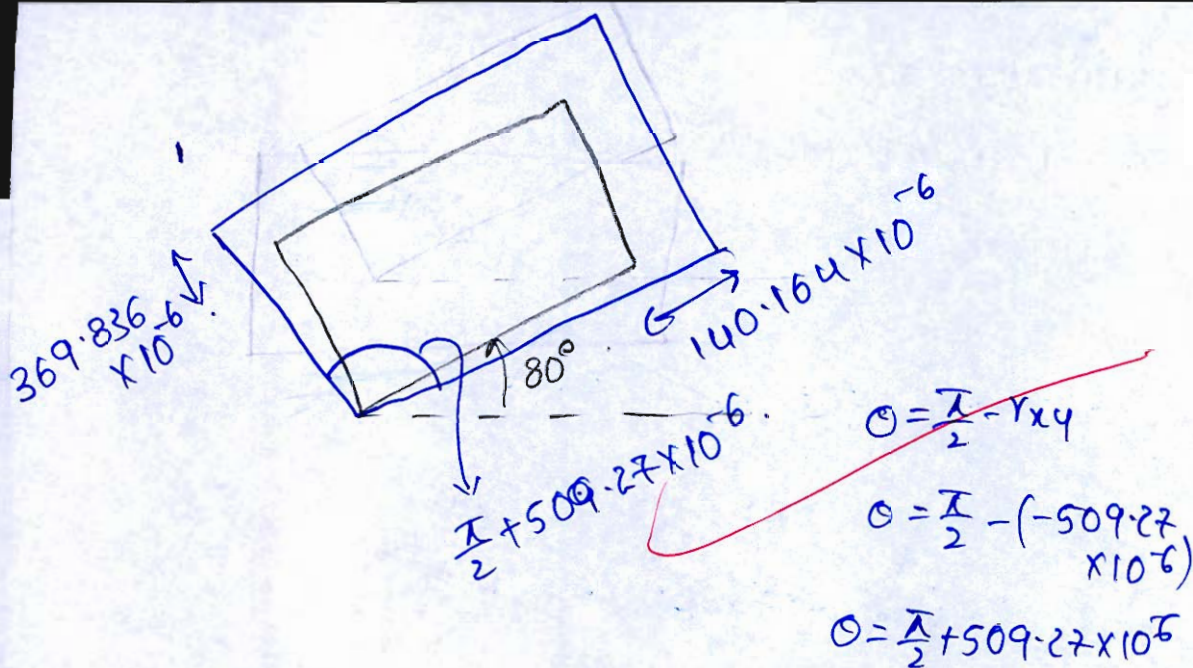 369.836
×10⁻⁶
140.164×10⁻⁶
80°
π/2+509.27×10⁻⁶.
θ=π/2-γxy
θ=π/2-(-509.27
×10⁻⁶)
θ=π/2+509.27×10⁻⁶